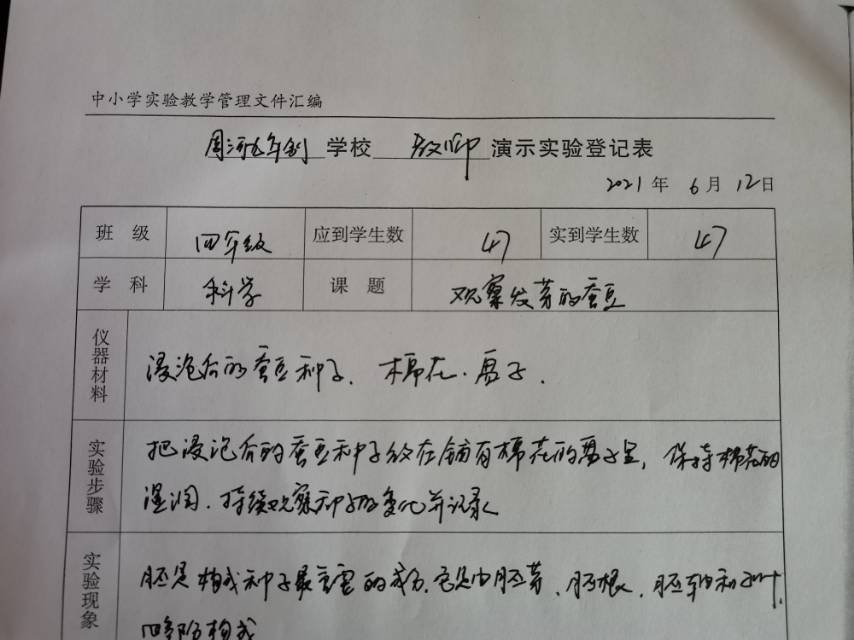 中小学实验教学管理文件汇编
周河九年制学校 教师 演示实验登记表
2021年 6月 12日
班 级 四年级 应到学生数 47 实到学生数 47
学 科 科学 课 题 观察发芽的蚕豆
仪器材料 浸泡后的蚕豆种子. 棉花.
实验步骤 把浸泡后的蚕豆种子放在铺有棉花的里, 保持棉花的
湿润. 持续观察种子的变化并记录
实验现象 胚是构成种子最重要的部分.它是由胚芽、胚根、胚轴和子叶
四部分构成